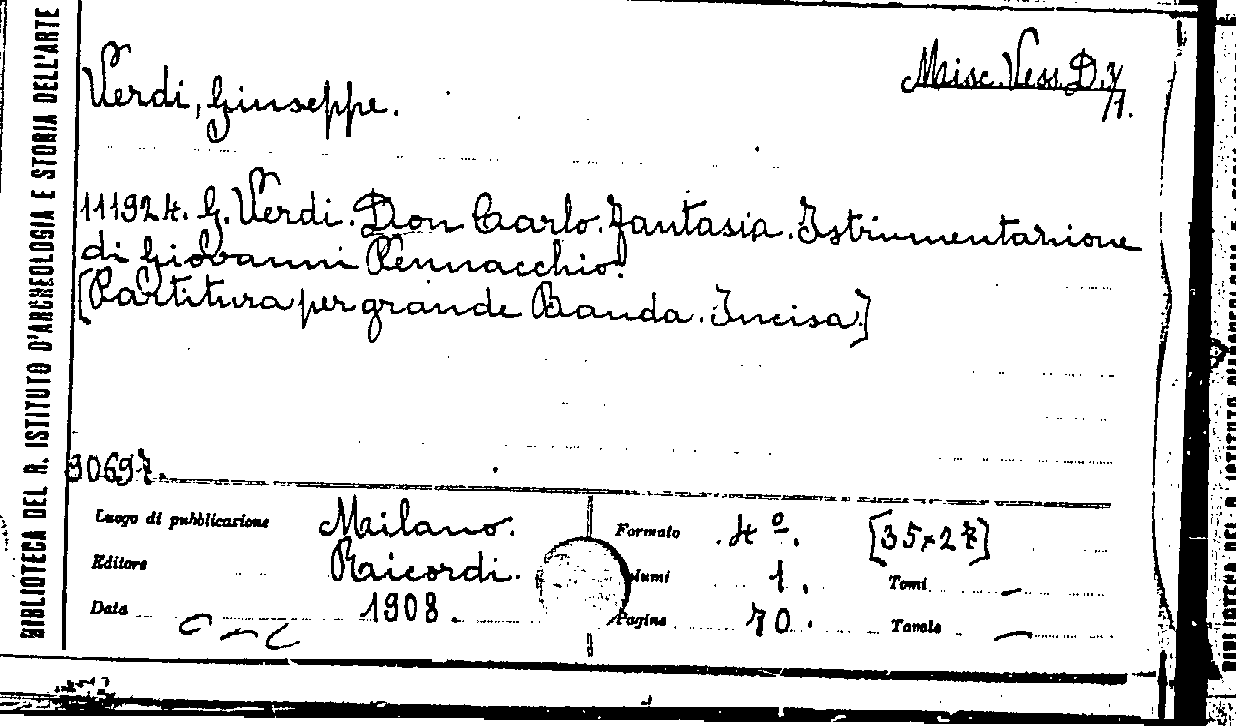 BIBLIOTECA DEL R. ISTITUTO D'ARCHEOLOGIA E STORIA DELL'ARTE
Misc. Vess. D.
1.
Verdi, Giuseppe.
111924. G. Verdi. Don Carlo. Fantasia. Istrumentazione
di Giovanni Pennacchio.
[Partitura per grande Banda. Incisa.]
90697.
Luogo di pubblicazione Milano. Formato 4º. [35×27]
Editore Ricordi. Volumi 1. Tomi —
Data 1908. Pagine 70. Tavole —